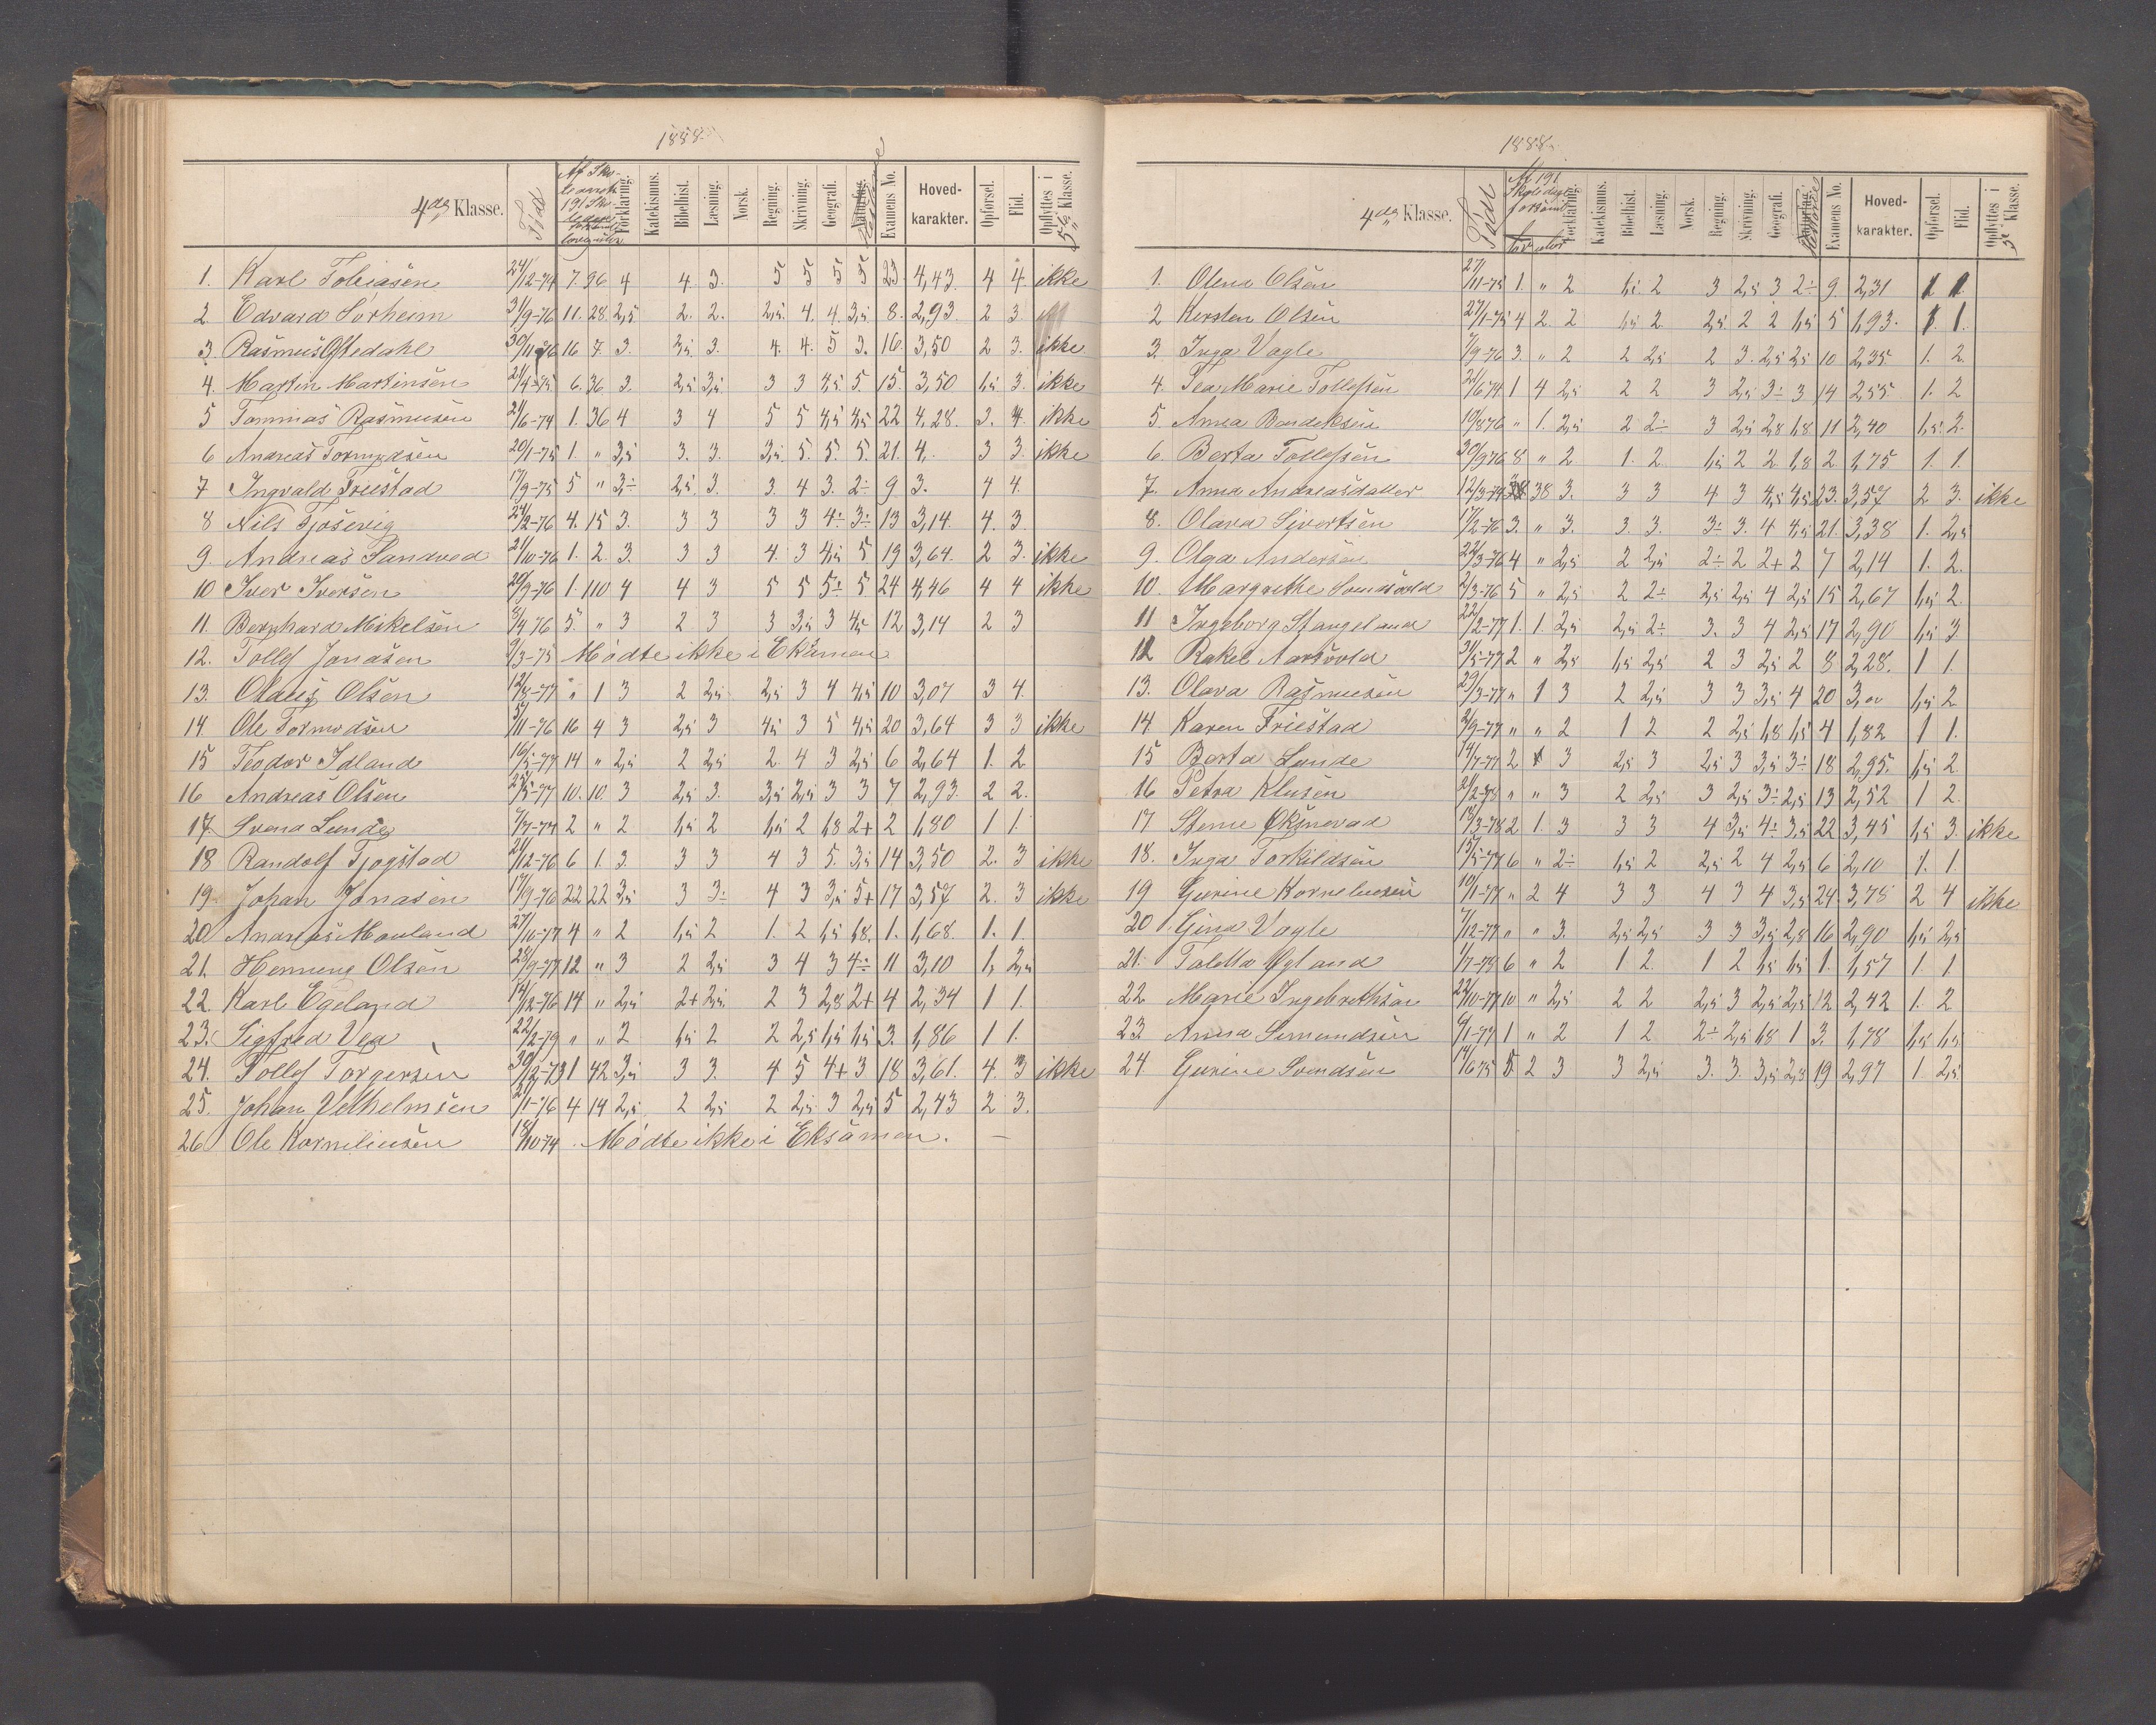 1888
4de Klasse. Född Af Sko- Forklaring. Katekismus. Bibelhist. Læsning. Norsk. Regning. Skrivning. Geografi. Naturfag. Historie Examens No. Hoved-karakter. Opførsel. Flid. Opflyttes i 5te Klasse.
1. Karl Tobiasen 24/12-74 7. 96 4 4. 3. 5 5 5 5 23. 4,43. 4 4. ikke
2. Edvard Sørheim 31/9-76 11. 28. 2,5 2. 2. 2,5. 4. 4. 3,5 8. 2,93. 2 3.
3. Rasmus Oftedahl 30/11-76 16 7. 3. 3,5. 3. 4. 4. 5 3. 16. 3,50 2 3. ikke
4. Martin Martinsen 21/4-75 6. 36 3. 2,5 3,5 3 3 4,5 5 15. 3,50 1,5. 3. ikke
5 Tommas Rasmusen 21/6-74 1. 36 4 3 4 5 5 4,5 4,5 22 4,28. 3. 4. ikke
6 Andreas Tormodsen 20/1-75 1. " 3,5 3. 3. 3,5. 5. 5. 5. 21. 4,. 3 3. ikke
7 Ingvald Friestad 17/9-75 5 " 3,÷ 2,5. 3. 3. 4 3. 2÷ 9 3. 4 4.
8 Nils Tjosevig 24/12-76 4. 15 3. 3 3 3 3 4÷ 3÷ 13 3,14. 4. 3.
9. Andreas Sandved 21/10-76 1. 2. 3. 3 3 4. 3 4,5 5 19 3,64. 2 3. ikke
10 Iver Iversen 29/9-76 1. 110 4 4 3 5 5 5÷ 5 24 4,46 4 4 ikke
11. Bernhard Mikelsen 8/4 76 5. " 3 2 3 3 3,5 3 4,5 12 3,14 2 3
12. Tollef Jonasen 9/3-75 Mødte ikke i Eksamen
13. Olaus Olsen 12/8-77 " 1 3 2 2,5 2,5 3 4 4,5 10 3,07 3 4.
14. Ole Tormodsen 5/11-76 16 4 3 2,5 3 4,5 3 5 4,5 20 3,64 3 3 ikke
15 Teodor Idland 16/5-77 14 " 2,5 2 2,5 2. 4 3 2,5 6 2,64 1. 2
16 Andreas Olsen 25/5-77 10. 10. 3 2,5 3. 3,5 2,5 3 3 7 2,93. 2 2.
17. Svend Lunde 7/7-77 2 " 2 1,5 2 1,5 2 1,8 2+ 2 1,80 1 1.
18 Randolf Tjogstad 24/12-76 6 1. 3. 3 3 4 3 5. 3,5 14 3,50 2. 3 ikke
19. Johan Jonasen 17/9-76 22 22 3,5 3 3÷ 4 3 3,5 5+ 17 3,57 2. 3 ikke
20 Andreas Mauland 27/10-77 4 " 2 1,5 2 1. 2 1,5 1,8. 1. 1,68 1. 1.
21. Henning Olsen 28/9-77 12 " 3 2 2,5 3 4 3 4÷ 11 3,10 1, 2,5
22. Karl Egeland 14/12-76 14 " 2,5 2+ 2,5 2 3 2,8 2+ 4 2,34 1 1.
23. Sigfred Vea 22/2-79 " " 2 1,5 2 2 2,5 1,5 1,5 3. 1,86 1 1.
24. Tollef Torgersen 30/12-73 1 42 3,5 3 3. 4 5 4+ 3 18 3,61. 4. 3 ikke
25. Johan Velhelmsen 2/1-76 4 14 2,5 2 2,5 2 2,5 3 2,5 5 2,43 2 3.
26 Ole Korneliusen 18/10-74 . Mødte ikke i Eksamen. —
1888.
4de Klasse. Född Forklaring. Katekismus. Bibelhist. Læsning. Norsk. Regning. Skrivning. Geografi. Naturfag. Historie Examens No. Hoved-karakter. Opførsel. Flid. Opflyttes i 5te Klasse.
1. Olena Olsen 27/11-75 1. " 2 1,5. 2 3 2,5 3 2÷ 9. 2,31 1 1
2 Kersten Olsen 27/1-75 4 2. 2 1,5 2. 2,5. 2 2 1,5 5 1,93. 1. 1.
3. Inga Vagle 7/9-76 3. " 2 2 2,5 2 3. 2,5 2,5 10 2,35 1. 2.
4. Tea Marie Tollefsen 21/6 74 1 4 2,5 2 2 3 2,5 3÷ 3 14 2,55. 1. 2
5. Anna Bendeksen 10/8 76 " 1. 2,5 2 2÷ 3 2,5 2,8 1,8 11 2,40 1,5. 2.
6. Berta Tollefsen 30/9 76 8 " 2 1. 2. 1,5 2 2 1,8 2. 1,75 1. 1.
7. Anna Andreasdatter 12/3-74 38 38 3. 3 3 4 3 4,5 4,5 23. 3,57 2. 3. ikke
8. Olava Sivertsen 17/2-76 3. " 3. 3. 3. 3÷ 3. 4 4,5 21. 3,38 1. 2,5
9. Olga Andersen 22/3-76 4 " 2,5 2 2,5 2÷ 2 2+ 2 7 2,14 1. 2.
10. Margrethe Svendsvold 2/3-76 5 " 2,5 2 2÷ 2,5 2,5 4 2,5 15 2,67 1,5 2
11 Ingeborg Stangeland 22/2-77 1. 1. 2,5 2,5 2÷ 3. 3 4 2,5 17 2,90 1,5 3
12 Rakel Aarsvold 31/5-77 2 " 2,5 1,5 2,5 2 3 2,5 2 8 2,28. 1 1.
13. Olava Rasmusen 29/3-77 " 1 3 2 2,5 3 3 3,5 4 20 3,00 1,5 2
14. Karen Friestad 2/9-77 " " 2 1 2 2 2,5 1,8 1,5 4 1,82 1 1.
15 Berta Lunde 19/7-77 2 1 3 2,5 3 2,5 3 3,5 3÷ 18 2,95. 1,5 2.
16 Petra Klusen 21/2-78 " " 3 2 2,5 3 2,5 3÷ 2,5 13 2,52 1 2.
17 Stene Øksnevad 19/3-78 2 1. 3 3 3 4 3,5 4÷ 3,5 22 3,45 1,5 3. ikke
18. Inga Torkildsen 15/5-77 6 " 2÷ 1,5 2 2,5 2 4 2,5 6 2,10 1. 1.
19 Gurine Korneliusen 10/1-77 " 2 4 3 3 4 3 4 3,5 24. 3,78 2 4 ikke
20. Gina Vagle 7/12-77 " " 3. 2,5 2,5 3 3 3,5 2,8 16 2,90 1,5 2,5
21. Taletta 1/7-79 6 " 2 1 2 1 2 1,5 1,5 1. 1,57 1. 1
22 Marie Ingebrethsen 22/10-77 10 " 2,5 2 2 2,5 3 2,5 2,5 12 2,42 1. 2
23 Anna Semundsen 6/1-77 1 " 2 1 2 2÷ 2,5 1,8 1 3. 1,78 1,5 1,5
24. Gurine Svendsen 14/6 75 5. 2 3 3 2,5 3. 3. 3,5 2,8 19 2,97 1. 2,5